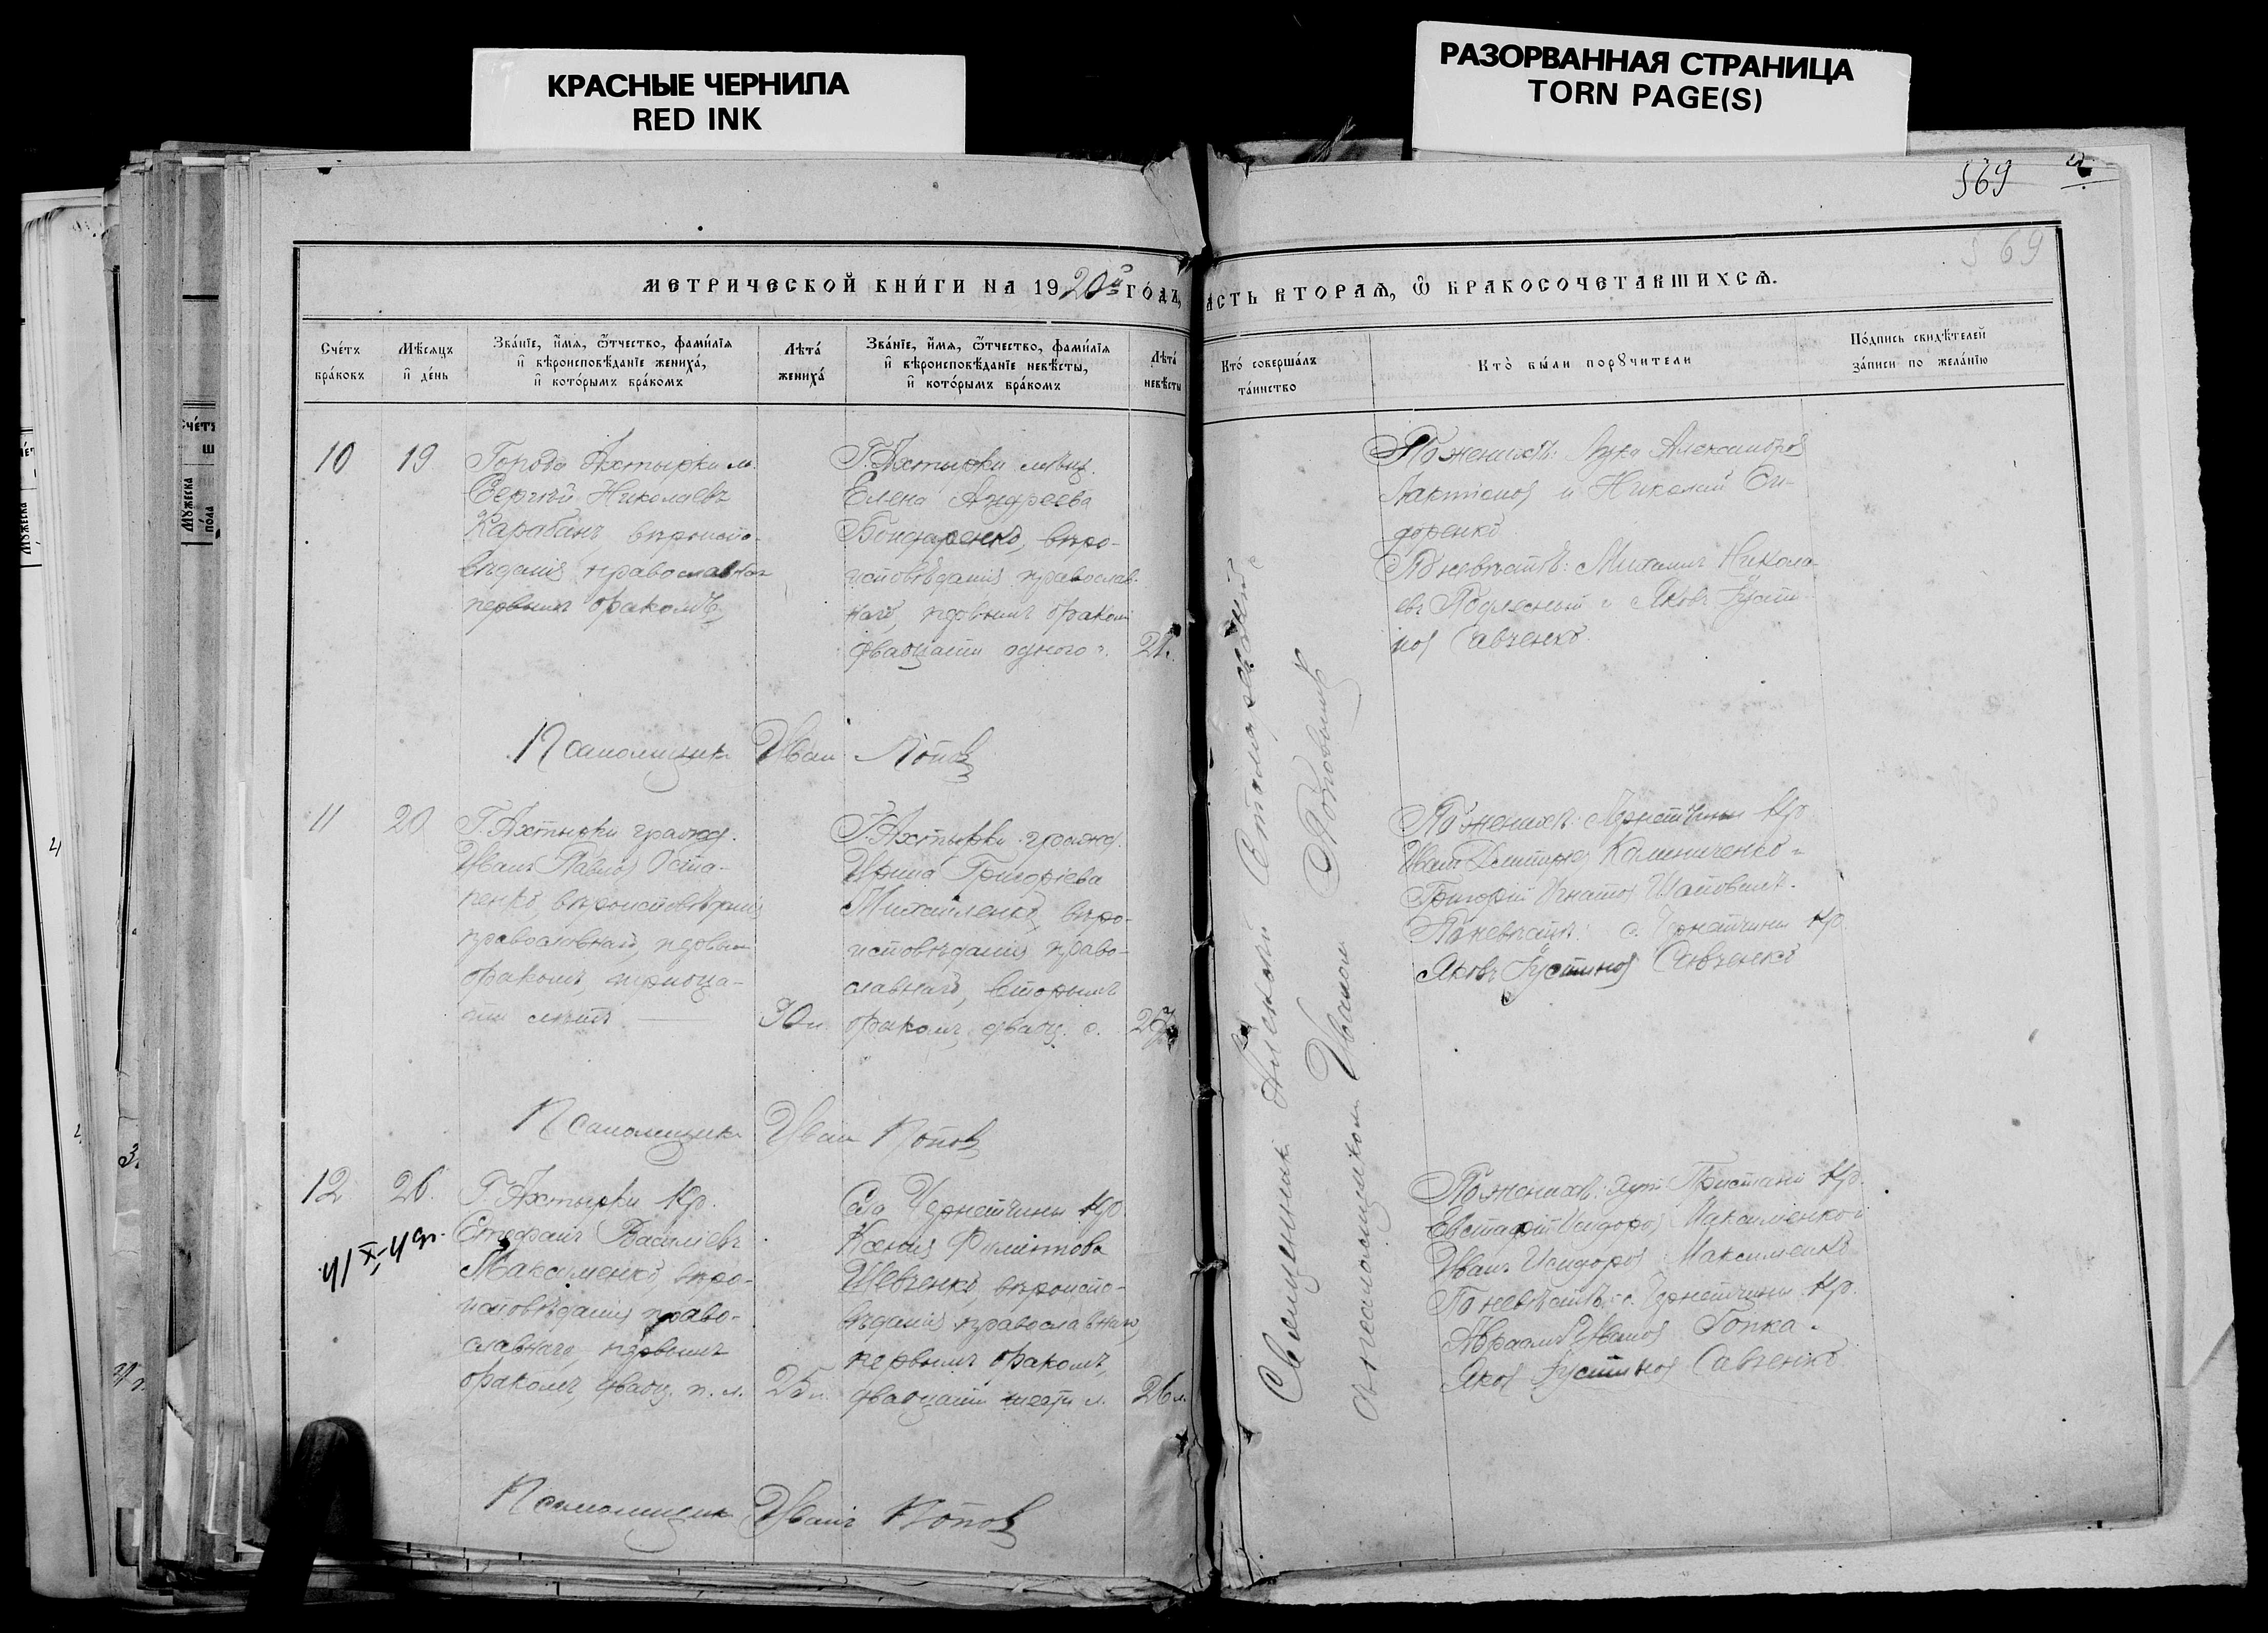 КРАСНЫЕ ЧЕРНИЛА
RED INK
РАЗОРВАННАЯ СТРАНИЦА
TORN PAGE(S)
569
569
МЕТРИЧЕСКОЙ КНИ́ГИ НА 1920й ГО́ДЪ,
АСТЬ ВТОРАѦ, Ѿ БРАКОСОЧЕТАВШИХСѦ.
Сче́тъ
бра́ковъ
Мѣ́сѧцъ
и҆ де́нь
Зва́нїе, и҆́мѧ, ѻ҆́тчество, фами́лїѧ
и҆ вѣроисповѣ́данїе жениха́,
и҆ кото́рымъ бра́комъ
Лѣта́
жениха́
Зва́нїе, и҆́мѧ, ѻ҆́тчество, фами́лїѧ
и҆ вѣроисповѣ́данїе невѣ́сты,
и҆ кото́рымъ бра́комъ
Лѣта́
невѣ́сты
Кто̀ соверша́лъ
та́инство
Кто̀ бы́ли порꙋчители
По́дпись свидѣ́телей
за́писи по жела́нїю
10
19
Города Ахтырки м.
Сергѣй Николаевъ
Карабанъ, вѣроиспо-
вѣданія православнаг
первымъ бракомъ,
Г. Ахтырки мѣщ.
Елена Андреева
Бондаренко, вѣро-
исповѣданія православ-
наго, первымъ бракомъ
двадцати одного г.
21.
По женихѣ: Лука Александров
Лактіонов и Николай Си-
доренко
По невѣстѣ: Михаилъ Никола-
евъ Подлесный и Яковъ Густи-
нов Савченко.
Псаломщикъ Иван Попов
11
20
Г. Ахтырки гражд.
Иванъ Павлов Оста-
пенко, вѣроисповѣданія
православнаго, первым
бракомъ, тридца-
ти лѣтъ
30 л.
Г. Ахтырки гражд.
Ирина Григоріева
Михайленко, вѣро-
исповѣданія право-
славнаго, вторымъ
бракомъ, двадц. с.
27
По женихѣ: Чернетчины кр.
Иван Дмитріев Калиниченко и
Григорій Игнатов Шаповалъ.
По невѣстѣ: с. Чернетчины кр.
Яковъ Густинов Савченко
Псаломщикъ Иван Попов
12
26.
Г. Ахтырки кр.
Стефанъ Василіевъ
Максименко, вѣро-
исповѣданія право-
славнаго, первымъ
бракомъ, двадц. п. л.
25 л.
Сла Чернетчины кр.
Ксенія Филиппова
Шевченко, вѣроиспо-
вѣданія православнаго,
первымъ бракомъ,
двадцати шести л.
26 л.
По женихѣ: хут. Пристани кр.
Евстафій Исидоров Максименко и
Иванъ Исидоров Максименко
По невѣстѣ: с. Чернетчины кр.
Авраамъ Иванов Гопка и
Яков Густинов Савченко.
Псаломщикъ Иванъ Попов
Священникъ Алексій
съ псаломщикомъ Иваном Поповымъ